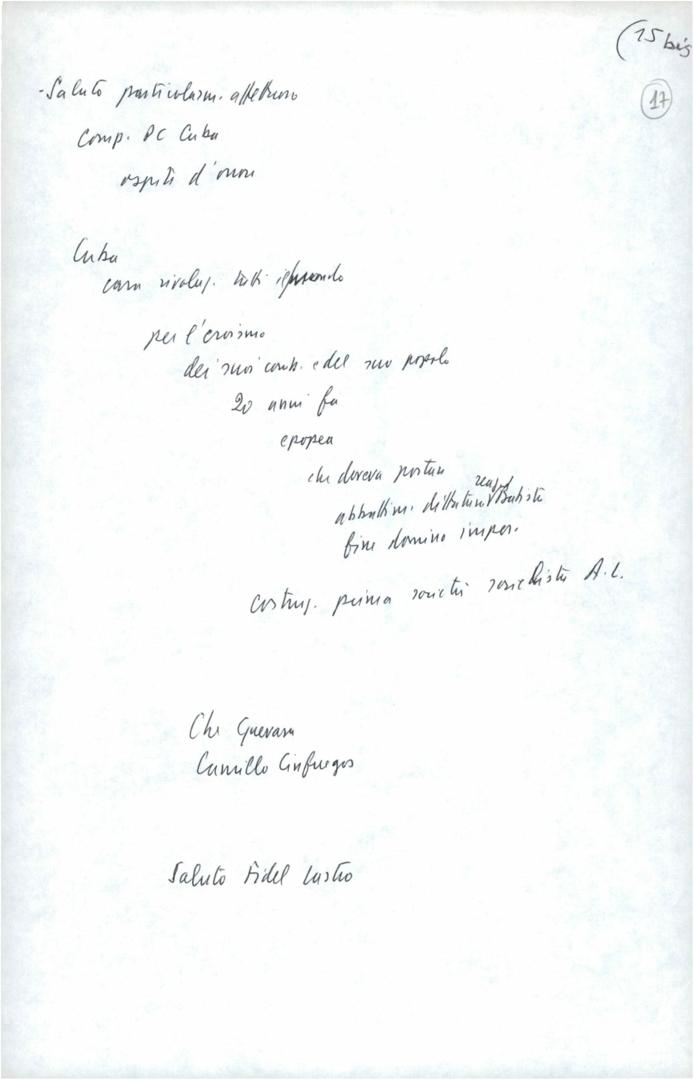 (15 bis
17
- Saluto particolarm. affettuoso
comp. PC Cuba
ospiti d'onore
Cuba
cara rivoluz. tutti
per l'eroismo
dei suoi comb. e del suo popolo
20 anni fa
epopea
che doveva portare
abbattim. dittatura Batista
fine dominio imper.
costruz. prima società socialista A.L.
Che Guevara
Camillo Cinfuegos
Saluto Fidel Castro